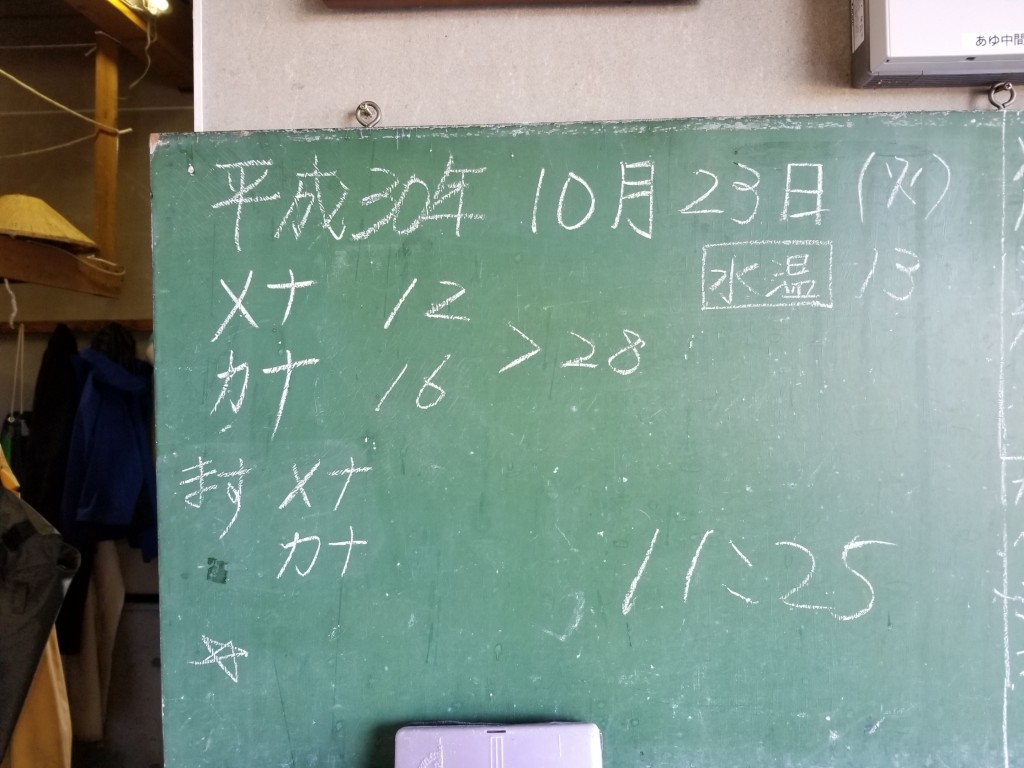 あゆ中間
平成30年 10月 23日 (火)
水温 13
メナ 12
カナ 16
> 28
ます メナ
カナ
11:25